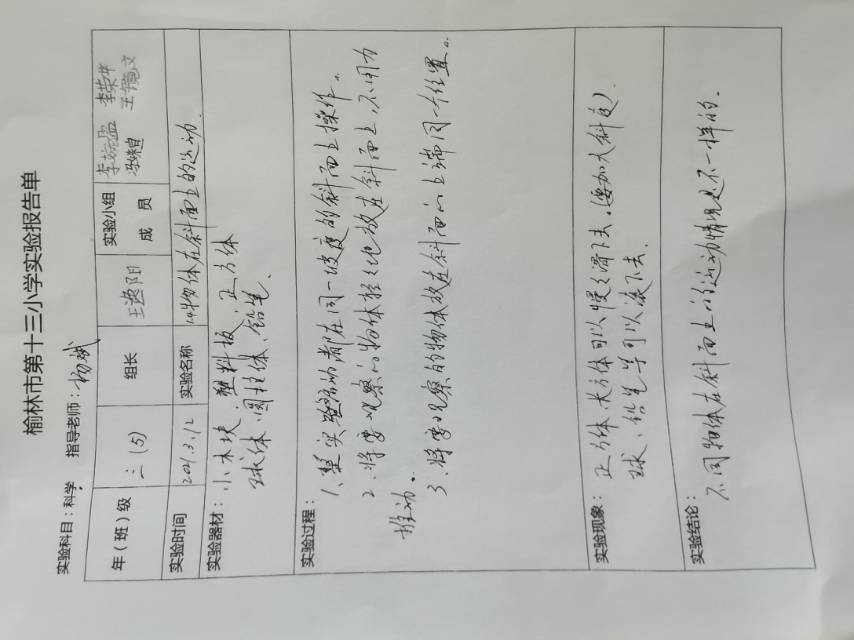 榆林市第十三小学实验报告单
实验科目：科学 指导老师：杨斌
年（班）级 三（5） 组长 王逸阳 实验小组成员 李荣华
冯缘 王镜文
实验时间 2021.3.12 实验名称 14物体在斜面上的运动
实验器材：小木块、塑料板、正方体
球体、圆柱体、铅笔。
实验过程：
1、整实验活动都在同一坡度的斜面上操作。
2、将要观察的物体轻轻地放在斜面上，不用力
推动。
3、将要观察的物体放在斜面的上端同一个位置。
实验现象：正方体、长方体可以慢慢滑下去。（要加大斜度）
球、铅笔等可以滚下去。
实验结论：
不同物体在斜面上的运动情况是不一样的。